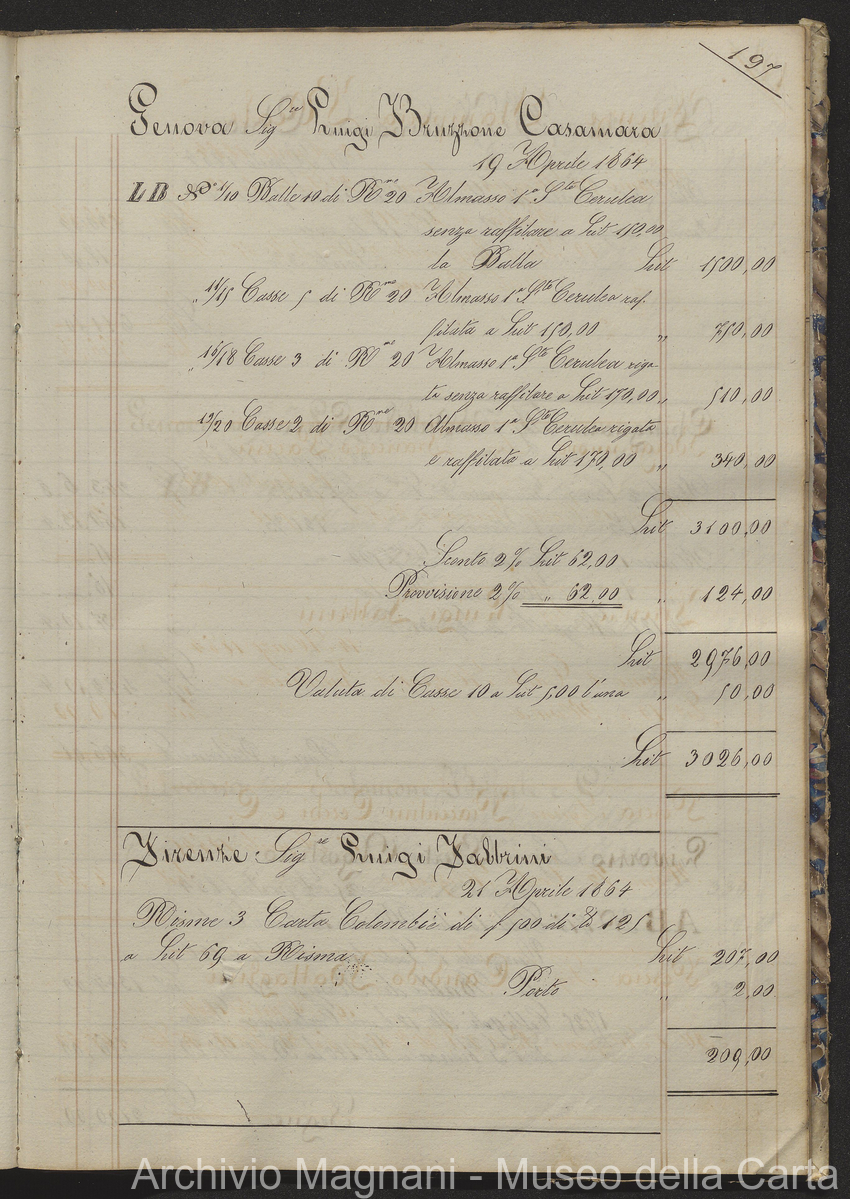 197
Genova Sig.re Luigi Bruzzone Casamara
19 Aprile 1864
LB N.º 1/10 Balle 10 di R.me 20 Almasso 1.a S.te Cerulea
senza raffilare a Lit 150,00
la Balla Lit 1500,00
" 11/15 Casse 5 di R.me 20 Almasso 1.a S.te Cerulea raf-
filata a Lit 150,00 " 750,00
" 16/18 Casse 3 di R.me 20 Almasso 1.a S.te Cerulea riga-
ta senza raffilare a Lit 170,00 " 510,00
19/20 Casse 2 di R.me 20 Almasso 1.a S.te Cerulea rigata
e raffilata a Lit 170,00 " 340,00
Lit 3100,00
Sconto 2% Lit 62,00
Provvisione 2% " 62,00 " 124,00
Lit 2976,00
Valuta di Casse 10 a Lit 5,00 l'una " 50,00
Lit 3026,00
Firenze Sig.re Luigi Fabbrini
21 Aprile 1864
Risme 3 Carta Colombié di f 500 di 125
a Lit 69 a Risma Lit 207,00
Porto " 2,00
209,00
Archivio Magnani - Museo della Carta